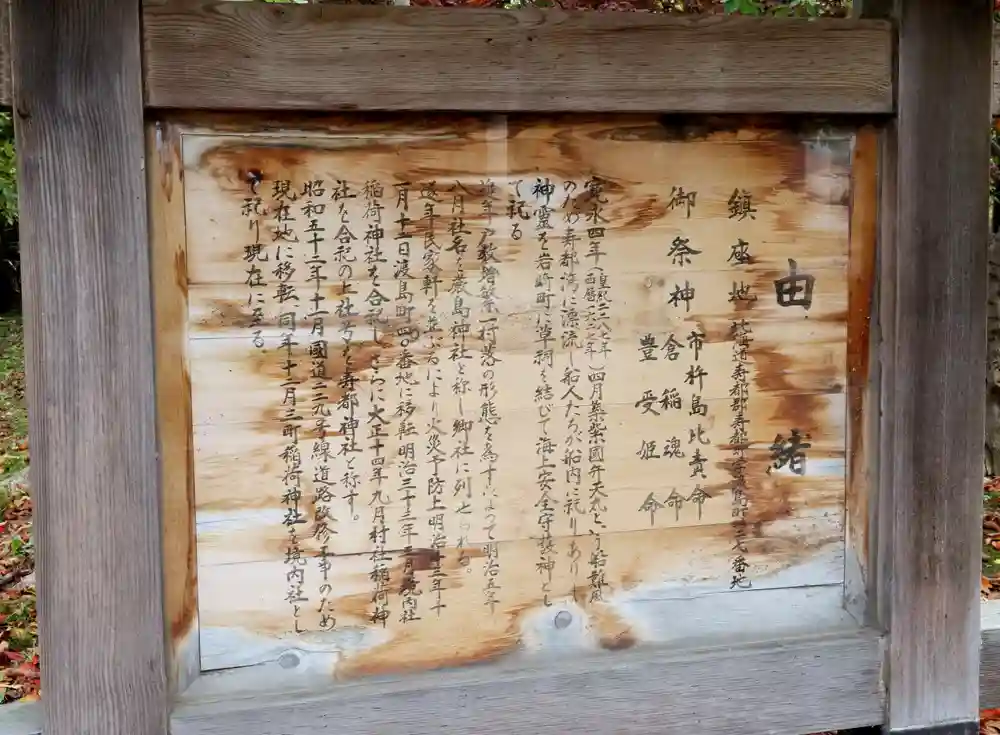 由緒
鎮座地 北海道寿都郡寿都町字渡島町 番地
御祭神 市杵島比売命
倉稲魂命
豊受姫命
寛永四年(皇紀二二八七年)(西暦一六二七年)四月 國弁天丸と 船難風
のため寿都湾に漂流し船人たちが船内に祀りありし
神霊を岩崎町に草祠を結びて海上安全守護神とし
て祀る
逐年戸数増繁 村落の形態を為すによって明治五年
八月社名を厳島神社と称し郷社に列せられる。
逐年民家軒を並ぶるにより火災予防上明治 年十
一月十二日渡島町四〇番地に移転明治三十三年 月境内社
稲荷神社を合祀しさらに大正十四年九月村社稲荷神
社を合祀の上社号を寿都神社と称す。
昭和五十三年十一月國道二二九号線道路改修工事のため
現在地に移転、同年十二月三町稲荷神社を境内社とし
て祀り現在に至る。